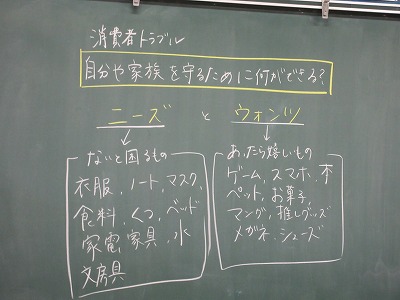 消費者トラブル
自分や家族を守るために何ができる?
ニーズ と ウォンツ
ないと困るもの
衣服、ノート、マスク、
食料、くつ、ベッド
家電、家具、水
文房具
あったら嬉しいもの
ゲーム、スマホ、本
ペット、お菓子、
マンガ、推しグッズ
メガネ、シューズ